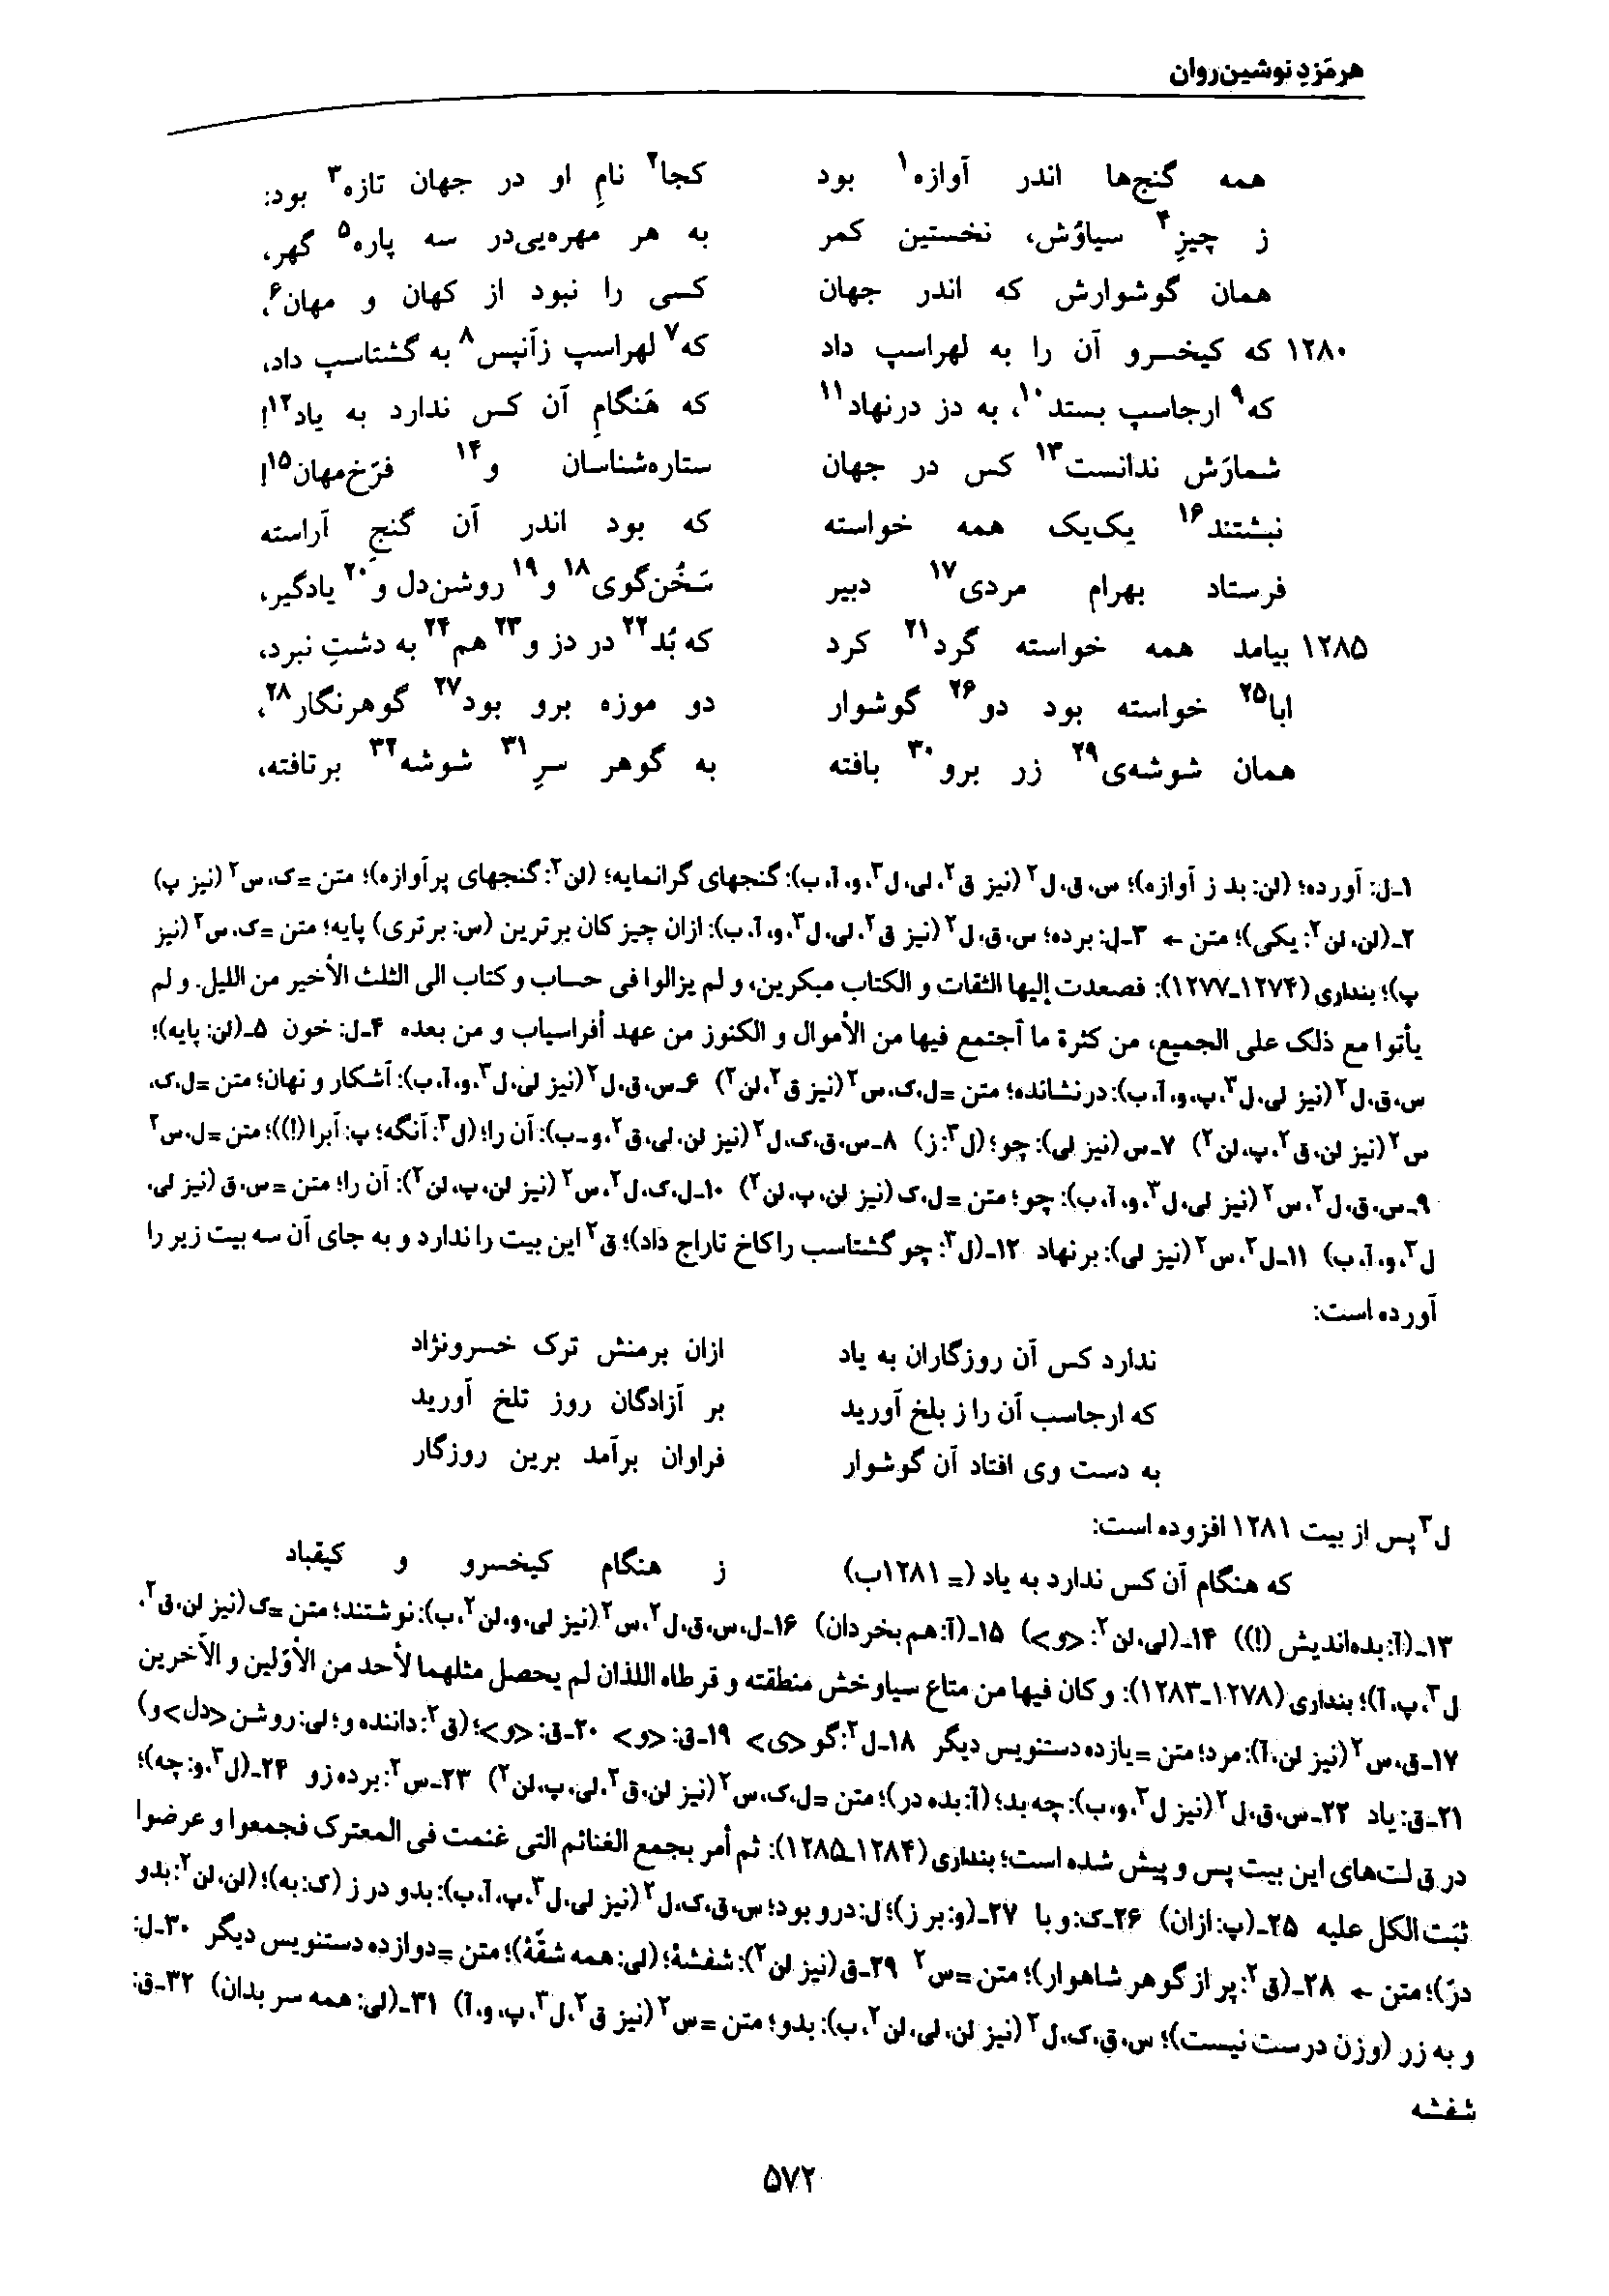 هرمَزدِ نوشین‌روان
همه گنج‌ها اندر آوازه۱ بود کجا۲ نامِ او در جهان تازه۳ بود:
ز چیزِ۴ سیاوُش، نخستین کمر به هر مهره‌یی‌در سه پاره۵ گهر،
همان گوشوارش که اندر جهان کسی را نبود از کهان و مهان۶،
۱۲۸۰ که کیخسرو آن را به لهراسپ داد که۷ لهراسپ زآنپس۸ به گشتاسپ داد،
که۹ ارجاسپ بستد۱۰، به دز درنهاد۱۱ که هَنگامِ آن کس ندارد به یاد۱۲!
شمارَش ندانست۱۳ کس در جهان ستاره‌شناسان و۱۴ فرّخ‌مهان۱۵!
نبشتند۱۶ یک‌یک همه خواسته که بود اندر آن گنجِ آراسته
فرستاد بهرام مردی۱۷ دبیر سَخُن‌گوی۱۸ و۱۹ روشن‌دل و۲۰ یادگیر،
۱۲۸۵ بیامد همه خواسته گرد۲۱ کرد که بُد۲۲ در دز و۲۳ هم۲۴ به دشتِ نبرد،
ابا۲۵ خواسته بود دو۲۶ گوشوار دو موزه برو بود۲۷ گوهرنگار۲۸،
همان شوشه‌ی۲۹ زر برو۳۰ بافته به گوهر سرِ۳۱ شوشه۳۲ برتافته،
۱ـ‌ل: آورده؛ (لن: بد ز آوازه)؛ س، ق، ل۲ (نیز ق۲، لی، ل۳، و، آ، ب): گنجهای گرانمایه؛ (لن۲: گنجهای پرآوازه)؛ متن = ک، س۲ (نیز پ)
۲ـ(لن، لن۲: یکی)؛ متن ← ۳ـ‌ل: برده؛ س، ق، ل۲ (نیز ق۲، لی، ل۳، و، آ، ب): ازان چیز کان برترین (س: برتری) پایه؛ متن = ک، س۲ (نیز
پ)؛ بنداری (۱۲۷۴ـ۱۲۷۷): فصعدت إلیها الثقات و الکتاب مبکرین، و لم یزالوا فی حساب و کتاب الی الثلث الأخیر من اللیل. و لم
یأتوا مع ذلک علی الجمیع، من کثرة ما أجتمع فیها من الأموال و الکنوز من عهد أفراسیاب و من بعده ۴ـ‌ل: خون ۵ـ(لن: پایه)؛
س، ق، ل۲ (نیز لی، ل۳، پ، و، آ، ب): درنشانده؛ متن = ل، ک، س۲ (نیز ق۲، لن۲) ۶ـ‌س، ق، ل۲ (نیز لی، ل۳، و، آ، ب): آشکار و نهان؛ متن = ل، ک،
س۲ (نیز لن، ق۲، پ، لن۲) ۷ـ‌س (نیز لی): چو؛ (ل۳: ز) ۸ـ‌س، ق، ک، ل۲ (نیز لن، لی، ق۲، و ـ ب): آن را؛ (ل۳: آنگه؛ پ: آبرا (!))؛ متن = ل، س۲
۹ـ‌س، ق، ل۲، س۲ (نیز لی، ل۳، و، آ، ب): چو؛ متن = ل، ک (نیز لن، پ، لن۲) ۱۰ـ‌ل، ک، ل۲، س۲ (نیز لن، پ، لن۲): آن را؛ متن = س، ق (نیز لی،
ل۳، و، آ، ب) ۱۱ـ‌ل۲، س۲ (نیز لی): برنهاد ۱۲ـ(ل۳: چو گشتاسب را کاخ تاراج داد)؛ ق۲ این بیت را ندارد و به جای آن سه بیت زیر را
آورده است:
ندارد کس آن روزگاران به یاد ازان برمنش ترک خسرونژاد
که ارجاسب آن را ز بلخ آورید بر آزادگان روز تلخ آورید
به دست وی افتاد آن گوشوار فراوان برآمد برین روزگار
ل۳ پس از بیت ۱۲۸۱ افزوده است:
که هنگام آن کس ندارد به یاد (= ۱۲۸۱ب) ز هنگام کیخسرو و کیقباد
۱۳ـ(آ: بده‌اندیش (!)) ۱۴ـ(لی، لن۲: <و>) ۱۵ـ(آ: هم بخردان) ۱۶ـ‌ل، س، ق، ل۲، س۲ (نیز لی، و، لن۲، ب): نوشتند؛ متن = ک (نیز لن، ق۲،
ل۳، پ، آ)؛ بنداری (۱۲۷۸ـ۱۲۸۳): و کان فیها من متاع سیاوخش منطقته و قرطاه اللذان لم یحصل مثلهما لأحد من الأوّلین و الآخرین
۱۷ـ‌ق، س۲ (نیز لن، آ): مرد؛ متن = یازده دستنویس دیگر ۱۸ـ‌ل۲: گو<ی> ۱۹ـ‌ق: <و> ۲۰ـ‌ق: <و>؛ (ق۲: داننده و؛ لی: روشن<دل> و)
۲۱ـ‌ق: یاد ۲۲ـ‌س، ق، ل۲ (نیز ل۳، و، ب): چه بد؛ (آ: بده در)؛ متن = ل، ک، س۲ (نیز لن، ق۲، لی، پ، لن۲) ۲۳ـ‌س۲: برده زو ۲۴ـ(ل۳، و: چه)؛
در ق لت‌های این بیت پس و پیش شده است؛ بنداری (۱۲۸۴ـ۱۲۸۵): ثم أمر بجمع الغنائم التی غنمت فی المعترک فجمعوا و عرضوا
ثبَت الکل علیه ۲۵ـ(پ: ازان) ۲۶ـ‌ک: و با ۲۷ـ(و: بر ز)؛ ل: درو بود؛ س، ق، ک، ل۲ (نیز لی، ل۳، پ، آ، ب): بدو در ز (ک: به)؛ (لن، لن۲: بدو
درّ)؛ متن ← ۲۸ـ(ق۲: پر از گوهر شاهوار)؛ متن = س۲ ۲۹ـ‌ق (نیز لن۲): شفشهٔ؛ (لی: همه شفّهٔ)؛ متن = دوازده دستنویس دیگر ۳۰ـ‌ل:
و به زر (وزن درست نیست)؛ س، ق، ک، ل۲ (نیز لن، لی، لن۲، ب): بدو؛ متن = س۲ (نیز ق۲، ل۳، پ، و، آ) ۳۱ـ(لی: همه سر بدان) ۳۲ـ‌ق:
شفشه
۵۷۲